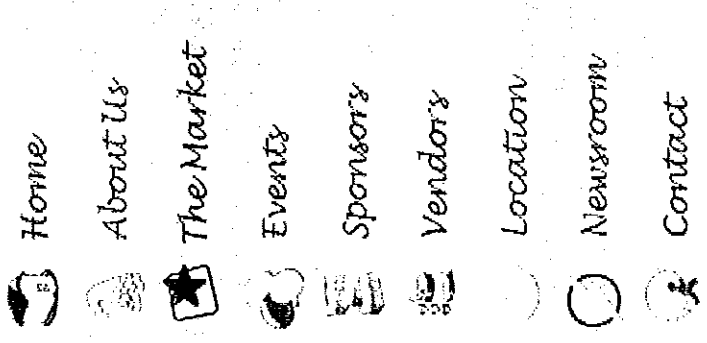 Home
About Us
The Market
Events
Sponsors
Vendors
Location
Newsroom
Contact